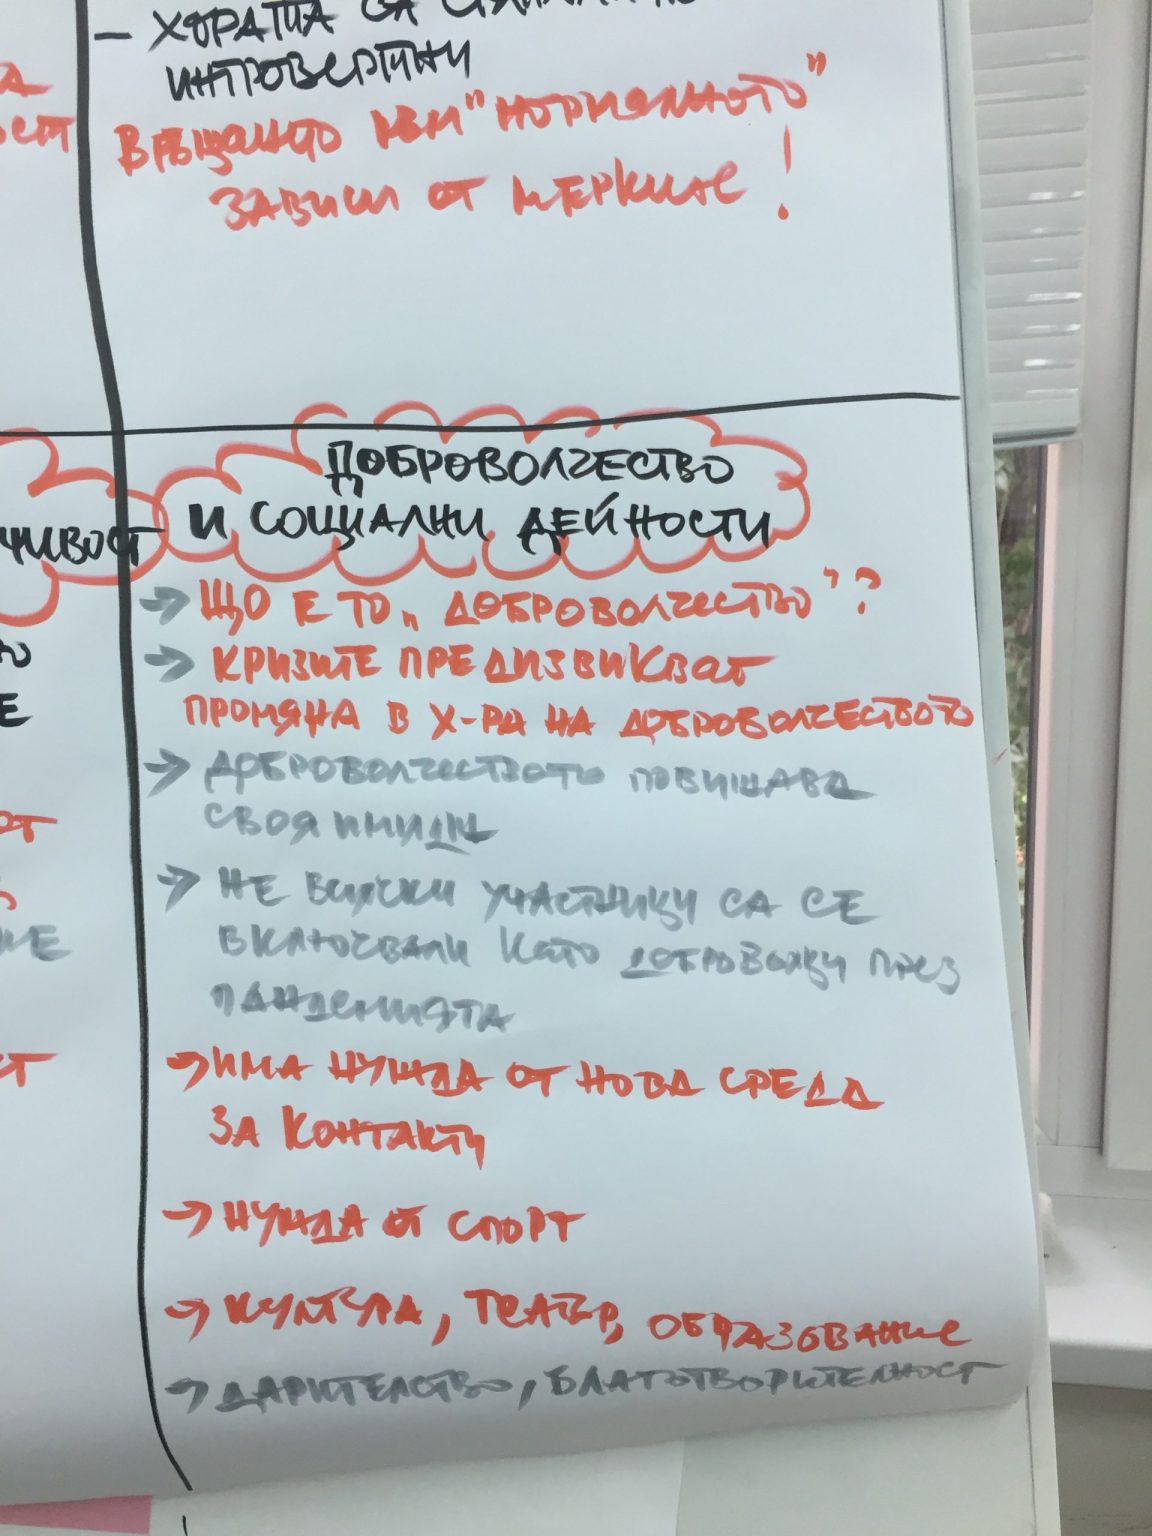 - ХОРАТА СА СТАНАЛИ ПО
ИНТРОВЕРТНИ
ВРЪЩАНЕТО КЪМ "НОРМАЛНОТО"
ЗАВИСИ ОТ МЕРКИТЕ!
ДОБРОВОЛЧЕСТВО
И СОЦИАЛНИ ДЕЙНОСТИ
ЧИВОСТ
→ ЩО Е ТО „ДОБРОВОЛЧЕСТВО"?
→ КРИЗИТЕ ПРЕДИЗВИКВАТ
ПРОМЯНА В Х-РА НА ДОБРОВОЛЧЕСТВОТО
→ ДОБРОВОЛЧЕСТВОТО ПОВИШАВА
СВОЯ ИМИДЖ
→ НЕ ВСИЧКИ УЧАСТНИЦИ СА СЕ
ВКЛЮЧВАЛИ КАТО ДОБРОВОЛЦИ ПРЕЗ
ПАНДЕМИЯТА
→ ИМА НУЖДА ОТ НОВА СРЕДА
ЗА КОНТАКТИ
→ НУЖДА ОТ СПОРТ
→ КУЛТУРА, ТЕАТЪР, ОБРАЗОВАНИЕ
→ ДАРИТЕЛСТВО, БЛАГОТВОРИТЕЛНОСТ